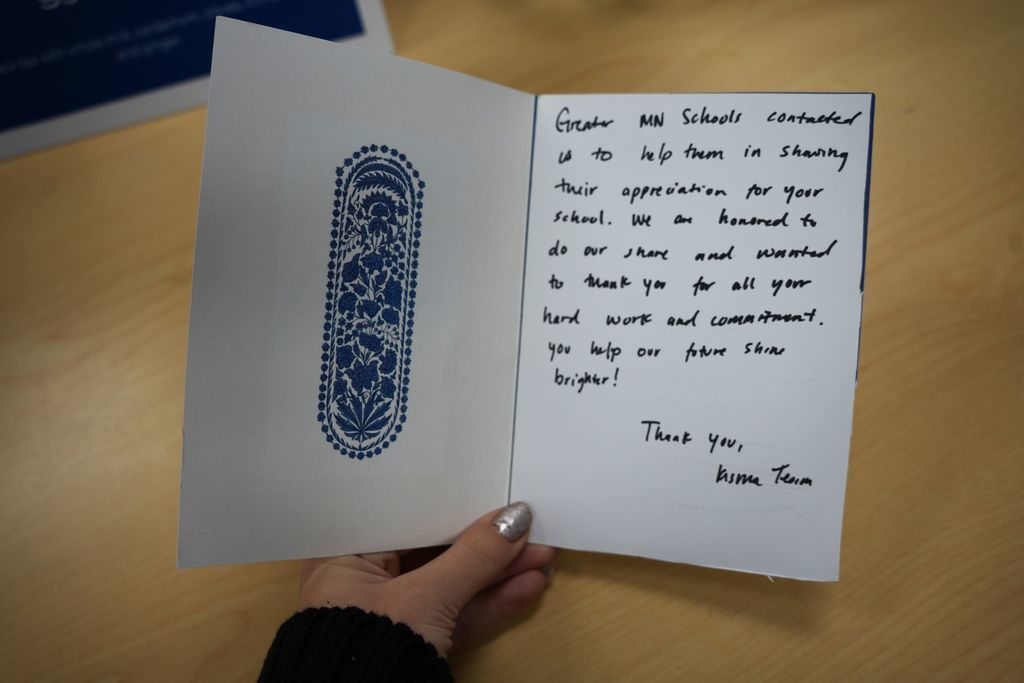 Greater MN Schools contacted
us to help them in showing
their appreciation for your
school. We are honored to
do our share and wanted
to thank you for all your
hard work and commitment.
you help our future shine
brighter!
Thank you,
Team
and ginger